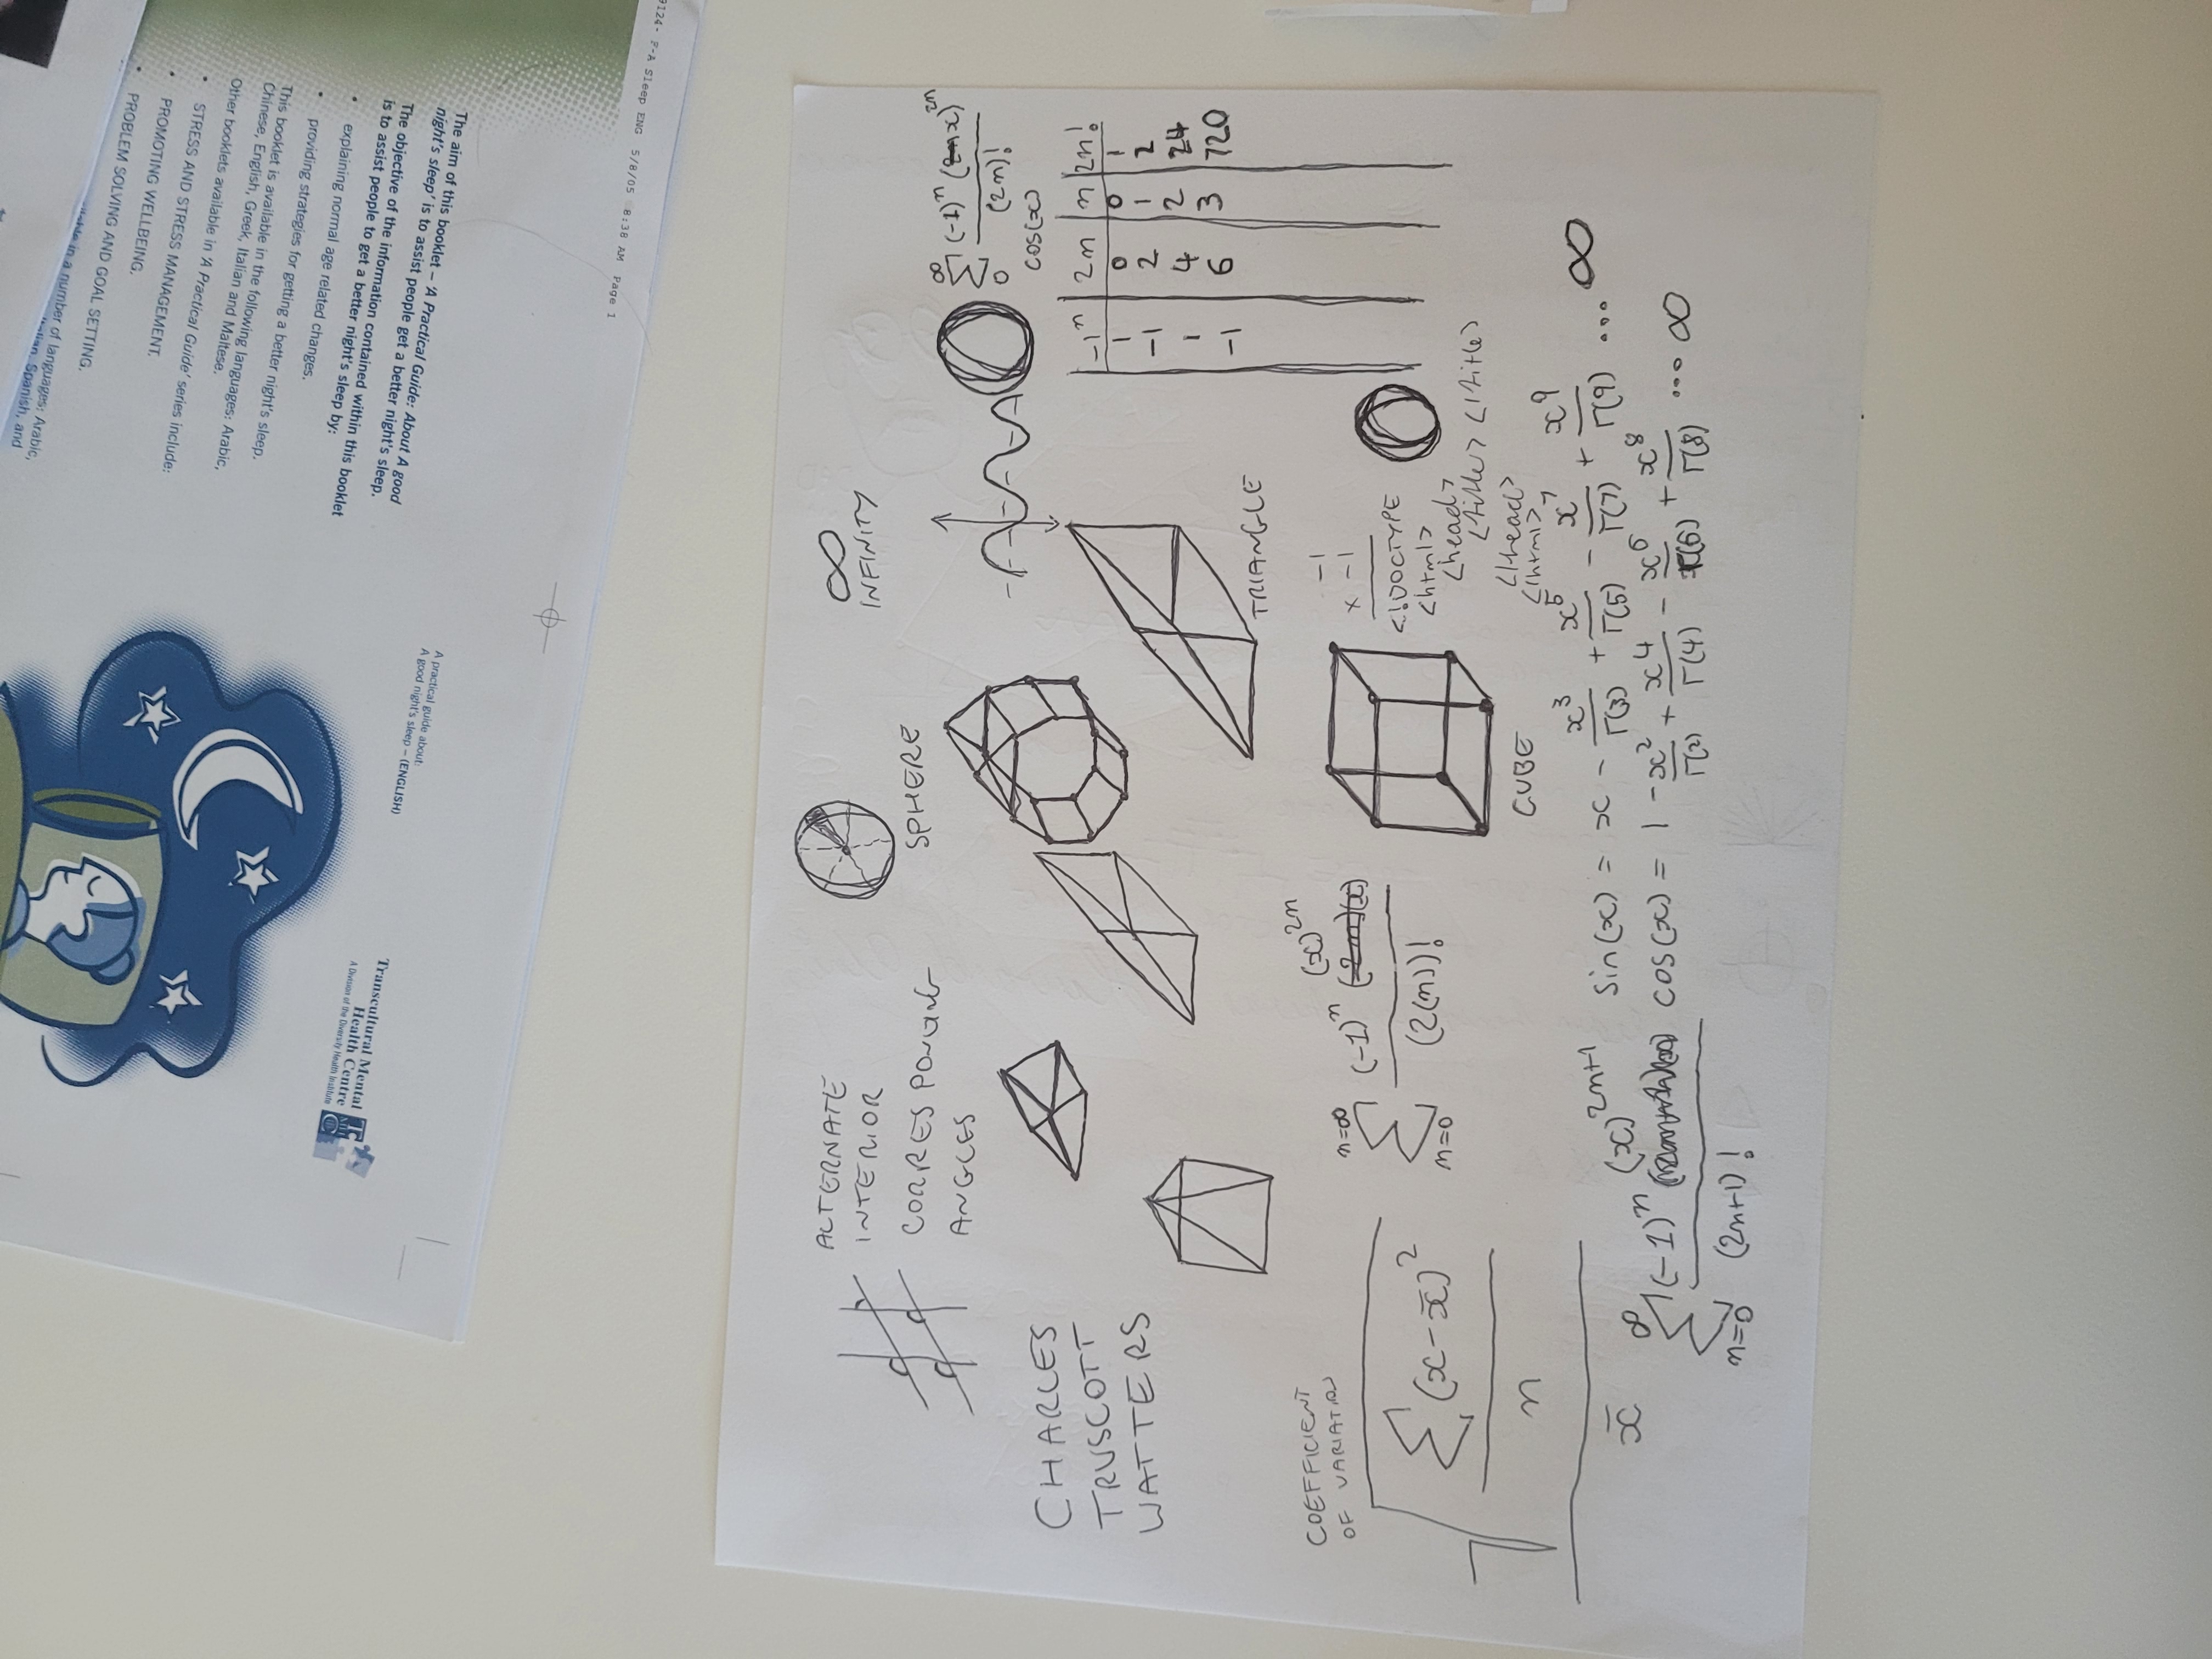 9124- P-A Sleep ENG 5/8/05 8:38 AM Page 1
The aim of this booklet – ‘A Practical Guide: About A good
night’s sleep’ is to assist people get a better night’s sleep.
The objective of the information contained within this booklet
is to assist people to get a better night’s sleep by:
• explaining normal age related changes.
• providing strategies for getting a better night’s sleep.
This booklet is available in the following languages: Arabic,
Chinese, English, Greek, Italian and Maltese.
Other booklets available in ‘A Practical Guide’ series include:
• STRESS AND STRESS MANAGEMENT.
• PROMOTING WELLBEING.
• PROBLEM SOLVING AND GOAL SETTING.
in a number of languages: Arabic,
Spanish, and
A practical guide about:
A good night’s sleep – (ENGLISH)
Transcultural Mental
Health Centre
A Division of the Diversity Health Institute
ALTERNATE
INTERIOR
CORRESPONDING
ANGLES
SPHERE
∞
INFINITY
∞
Σ (-1)^n (x)^2n
0 (2n)!
cos(x)
CHARLES
TRUSCOTT
WATTERS
-1^n 2n n 2n!
1 0 0 1
-1 2 1 2
1 4 2 24
-1 6 3 720
TRIANGLE
COEFFICIENT
OF VARIATION
√ Σ(x-x̄)^2
n
x̄
n=∞
Σ (-1)^n (x)^2n
n=0 (2(n))!
CUBE
-1
x -1
<!DOCTYPE
<html>
<head>
<title> </title>
</head>
</html>
∞
Σ (-1)^n (x)^2n+1
n=0 (2n+1)!
sin(x) = x - x^3/Γ(3) + x^5/Γ(5) - x^7/Γ(7) + x^9/Γ(9) ... ∞
cos(x) = 1 - x^2/Γ(2) + x^4/Γ(4) - x^6/Γ(6) + x^8/Γ(8) ... ∞